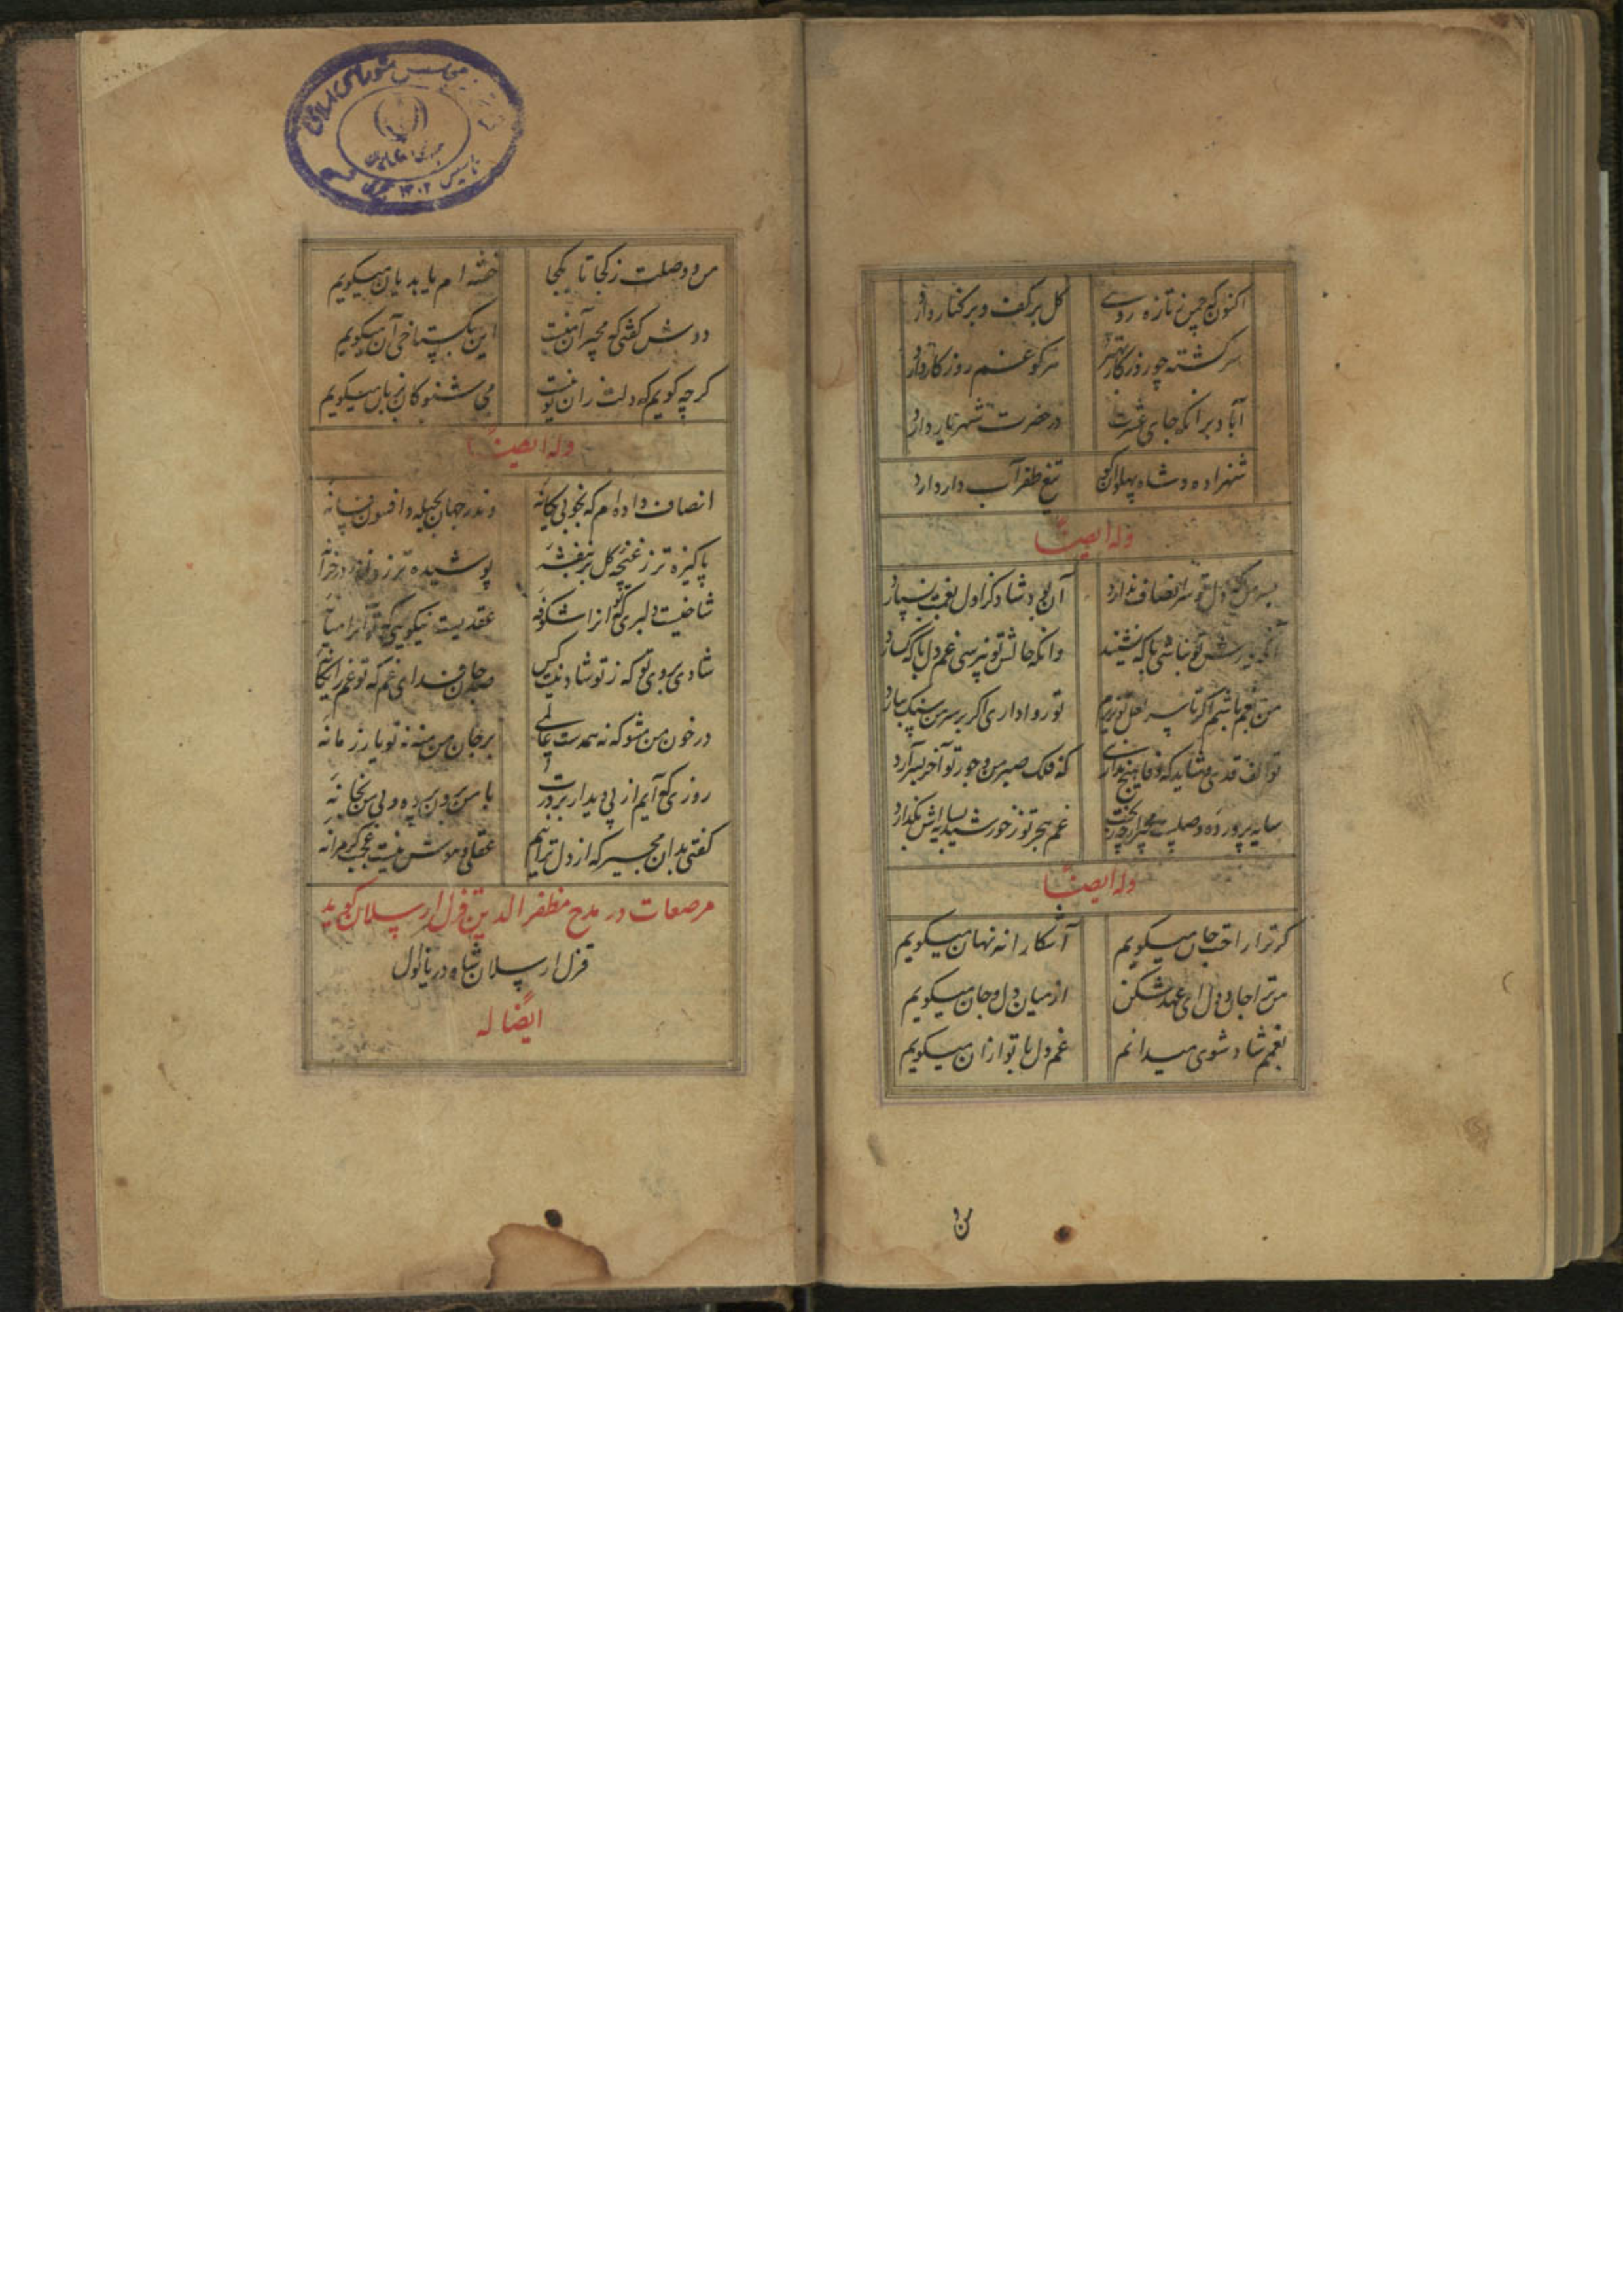 اکنون که چمن تازه روی
کل برکف و برکنار دارد
سرکشته چو روزکار بهتر
هرکو غم روزکار دارد
آباد برانکه جای عشرت
در حضرت شهریار دارد
شهزاده و شاه پهلوان کو
تیغ ظفر آب دار دارد
وله ایضاً
دل تو سر انصاف ندارد
آن به شاد کز اول بغمت نسپارد
تو نباشی با که نشیند
وانکه حالش تو نپرسی غم دل با که کسارد
من بغم باشم اکر تا سر لعل تو نریزم
تو رواداری اکر بر سر من سنک ببارد
تو الف قدی و شاید که وفا هیچ نداری
که فلک صبر من و جور تو آخر بسر آرد
سایه پرورده وصلیست مجیر ارچه بخت
غم هجر تو ز خورشید بسایه اش نکذارد
وله ایضاً
کر ترا راحت جان میکویم
آشکارا نه نهان میکویم
من ترا جان و دل ای عهدشکن
از میان دل و جان میکویم
بغمم شاد شوی میدانم
غم دل با تو ازان میکویم
من و
من و وصلت ز کجا تا بکجا
خفته ام یا بدیان میکویم
دوش کفتی که مجیر آن منست
این بکستاخی آن میکویم
کرچه کویم که دلت زان تو نیست
می شنو کان بزبان میکویم
وله ایضاً
انصاف داده ام که بخوبی یکانه
وندر جهان بحیله و افسون فسانه
پاکیزه تر ز غنچه کل بر بنفشه
پوشیده تر ز دانه در خزانه
شاخیست دلبری که تو انرا شکوفه
عقدیست نیکویی که تو آنرا میانه
شادی بروی تو که ز تو شاد نیست کس
صد جان فدای غم که تو غم را بهانه
در خون من مشو که نه همدست عالمی
بر جان من منه نه تو یار زمانه
روزی که آیم از پی دیدار بر درت
با من برون پرده و بی من بخانه
کفتی بدان مجیر که از دل تراییم
عقلی و هوش نیست عجب کر مرا نه
مرصعات در مدح مظفر الدین قزل ارسلان کوید
قزل ارسلان شاه دریانوال
ایضا له
مجلس شورای اسلامی